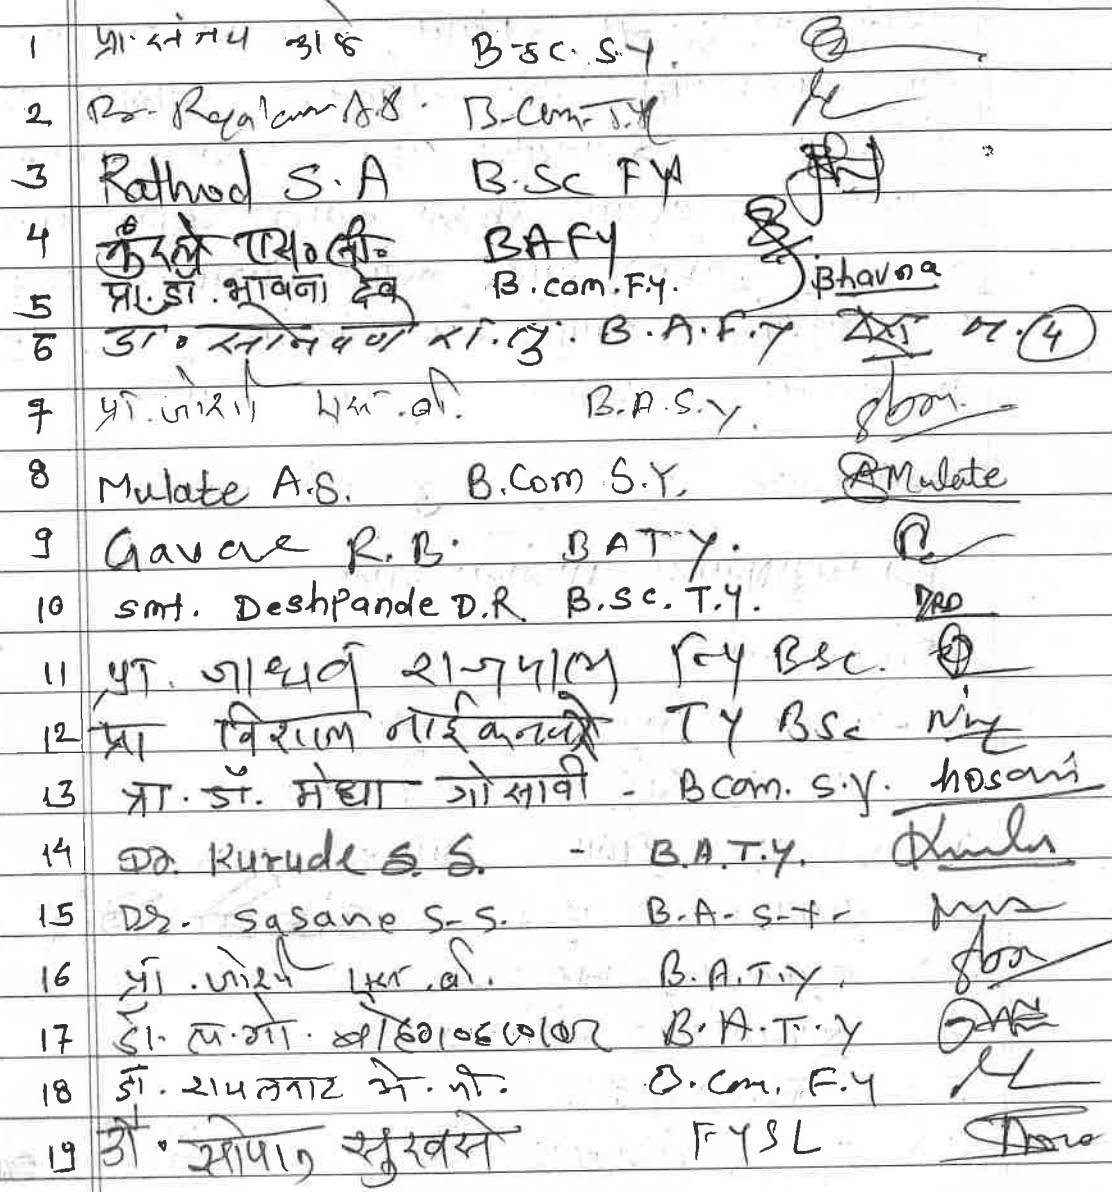 1 प्रा. B.sc. S.Y.
2 Dr. A.S. B.Com. T.Y
3 Rathod S. A B.Sc FY
4 BAFY
5 प्रा. डॉ. भावना देव B.com.F.y. Bhavna
6 डॉ. सोनवणे रा. B.A.F.y न. 4
7 प्रा. जोशी एस. बी. B.A.S.y.
8 Mulate A.S. B.Com S.Y. AMulate
9 Gavare R.B. BATY.
10 smt. Deshpande D.R B.sc. T.Y. DRD
11 प्रा. जाधव राजपाल F.y BSc.
12 प्रा विशाल नाईकनवरे TY BSc
13 प्रा. डॉ. मेधा गोसावी - Bcom. S.y. hosavi
14 Dr. Kurude S. S. - B.A.T.y.
15 Dr. Sasane S-S. B.A-S-Y-
16 प्रा. जोशी एस. बी. B.A.T.y.
17 डॉ. B.A.T.Y
18 डॉ. B.Com. F.y
19 डॉ. सोपान सुरवसे FYSL